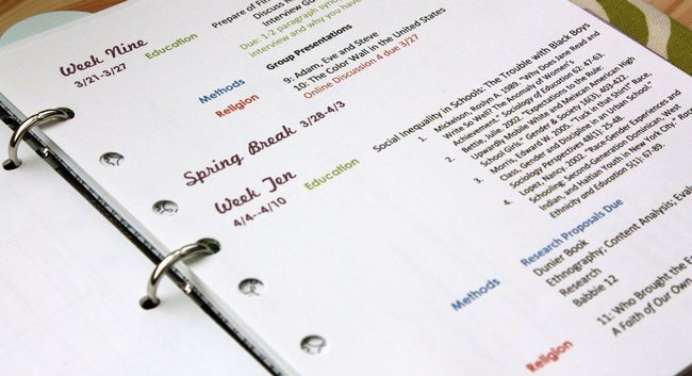 Prepare of
Discuss
Interview
Due: 1-2 paragraph
interview and why you have
Week Nine Education
3/21-3/27
Group Presentations
Methods 9: Adam, Eve and Steve
10: The Color Wall in the United States
Religion Online Discussion 4 due 3/27
Spring Break 3/28-4/3
Week Ten Education Social Inequality in Schools: The Trouble with Black Boys
4/4--4/10
1. Mickelson, Roslyn A. 1989. "Why Does Jane Read and
Write So Well? The Anomaly of Women's
Achievement." Sociology of Education 62: 47-63.
2. Bettie, Julie. 2002. "Expectations to the Rule:
Upwardly Mobile White and Mexican American High
School Girls." Gender & Society 16(3): 403-422.
3. Morris, Edward W. 2005. "Tuck in that Shirt!" Race,
Class, Gender and Discipline in an Urban School."
Sociology Perspectives 48(1): 25-48.
4. Lopez, Nancy. 2002. "Race-Gender Experiences and
Schooling: Second-Generation Dominican, West
Indian, and Haitian Youth in New York City."
Ethnicity and Education 5(1): 67-89.
Research Proposals Due
Methods Dunier Book
Ethnography; Content Analysis:
Research
Babbie 12
Religion 11: Who Brought the
A Faith of Our Own